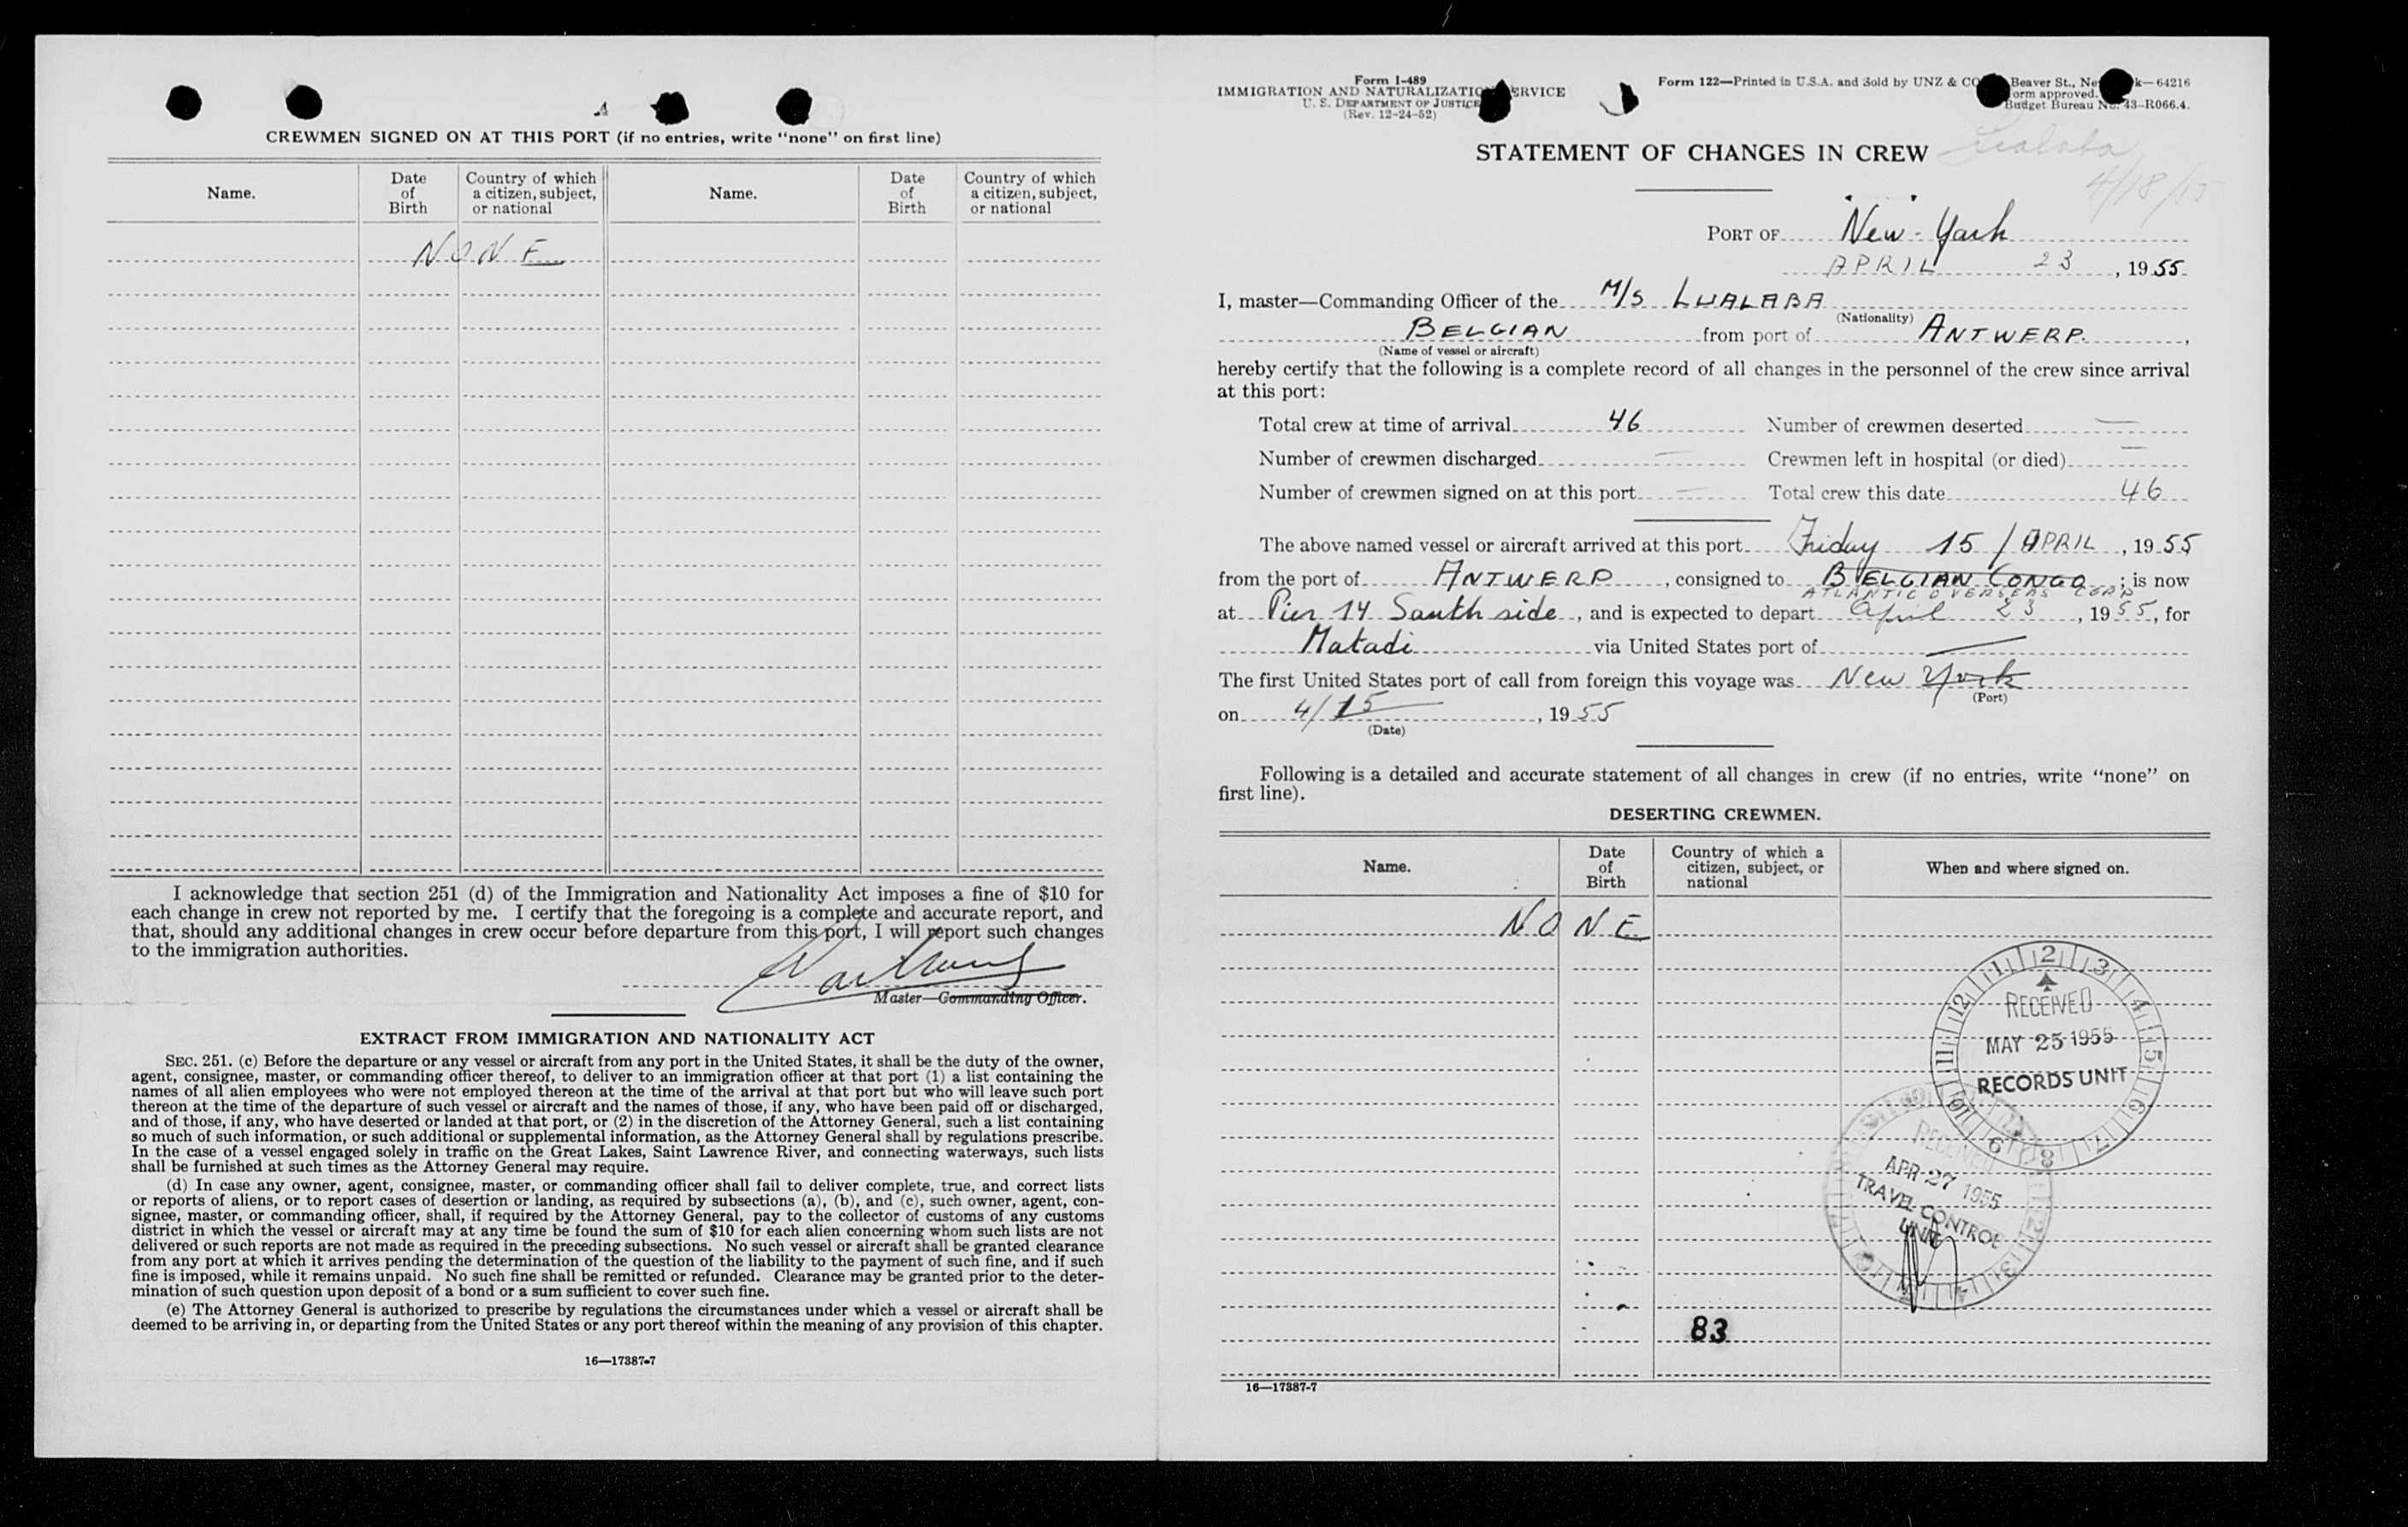 CREWMEN SIGNED ON AT THIS PORT (if no entries, write “none” on first line)
Name.
Date of Birth
Country of which a citizen, subject, or national
Name.
Date of Birth
Country of which a citizen, subject, or national
NONE
I acknowledge that section 251 (d) of the Immigration and Nationality Act imposes a fine of $10 for
each change in crew not reported by me. I certify that the foregoing is a complete and accurate report, and
that, should any additional changes in crew occur before departure from this port, I will report such changes
to the immigration authorities.
Master—Commanding Officer.
EXTRACT FROM IMMIGRATION AND NATIONALITY ACT
SEC. 251. (c) Before the departure or any vessel or aircraft from any port in the United States, it shall be the duty of the owner,
agent, consignee, master, or commanding officer thereof, to deliver to an immigration officer at that port (1) a list containing the
names of all alien employees who were not employed thereon at the time of the arrival at that port but who will leave such port
thereon at the time of the departure of such vessel or aircraft and the names of those, if any, who have been paid off or discharged,
and of those, if any, who have deserted or landed at that port, or (2) in the discretion of the Attorney General, such a list containing
so much of such information, or such additional or supplemental information, as the Attorney General shall by regulations prescribe.
In the case of a vessel engaged solely in traffic on the Great Lakes, Saint Lawrence River, and connecting waterways, such lists
shall be furnished at such times as the Attorney General may require.
(d) In case any owner, agent, consignee, master, or commanding officer shall fail to deliver complete, true, and correct lists
or reports of aliens, or to report cases of desertion or landing, as required by subsections (a), (b), and (c), such owner, agent, con-
signee, master, or commanding officer, shall, if required by the Attorney General, pay to the collector of customs of any customs
district in which the vessel or aircraft may at any time be found the sum of $10 for each alien concerning whom such lists are not
delivered or such reports are not made as required in the preceding subsections. No such vessel or aircraft shall be granted clearance
from any port at which it arrives pending the determination of the question of the liability to the payment of such fine, and if such
fine is imposed, while it remains unpaid. No such fine shall be remitted or refunded. Clearance may be granted prior to the deter-
mination of such question upon deposit of a bond or a sum sufficient to cover such fine.
(e) The Attorney General is authorized to prescribe by regulations the circumstances under which a vessel or aircraft shall be
deemed to be arriving in, or departing from the United States or any port thereof within the meaning of any provision of this chapter.
16—17387-7
Form I-489
IMMIGRATION AND NATURALIZATION SERVICE
U. S. DEPARTMENT OF JUSTICE
(Rev. 12-24-52)
Form 122—Printed in U.S.A. and Sold by UNZ & CO Beaver St., Ne k—64216
orm approved.
Budget Bureau No. 43-R066.4.
STATEMENT OF CHANGES IN CREW
Lualaba
4/18/55
PORT OF New-York
APRIL 23, 1955
I, master—Commanding Officer of the M/S LUALABA
(Nationality)
BELGIAN from port of ANTWERP.,
(Name of vessel or aircraft)
hereby certify that the following is a complete record of all changes in the personnel of the crew since arrival
at this port:
Total crew at time of arrival 46 Number of crewmen deserted —
Number of crewmen discharged — Crewmen left in hospital (or died) —
Number of crewmen signed on at this port — Total crew this date 46
The above named vessel or aircraft arrived at this port Friday 15 / APRIL, 1955
from the port of ANTWERP, consigned to BELGIAN CONGO; is now
ATLANTIC OVERSEAS CORP
at Pier 14 South side, and is expected to depart April 23, 1955, for
Matadi via United States port of —
The first United States port of call from foreign this voyage was New York
(Port)
on 4/15, 1955
(Date)
Following is a detailed and accurate statement of all changes in crew (if no entries, write “none” on
first line).
DESERTING CREWMEN.
Name.
Date of Birth
Country of which a citizen, subject, or national
When and where signed on.
NONE
RECEIVED
MAY 25 1955
RECORDS UNIT
RECEIVED
APR 27 1955
TRAVEL CONTROL
UNIT
83
16—17387-7